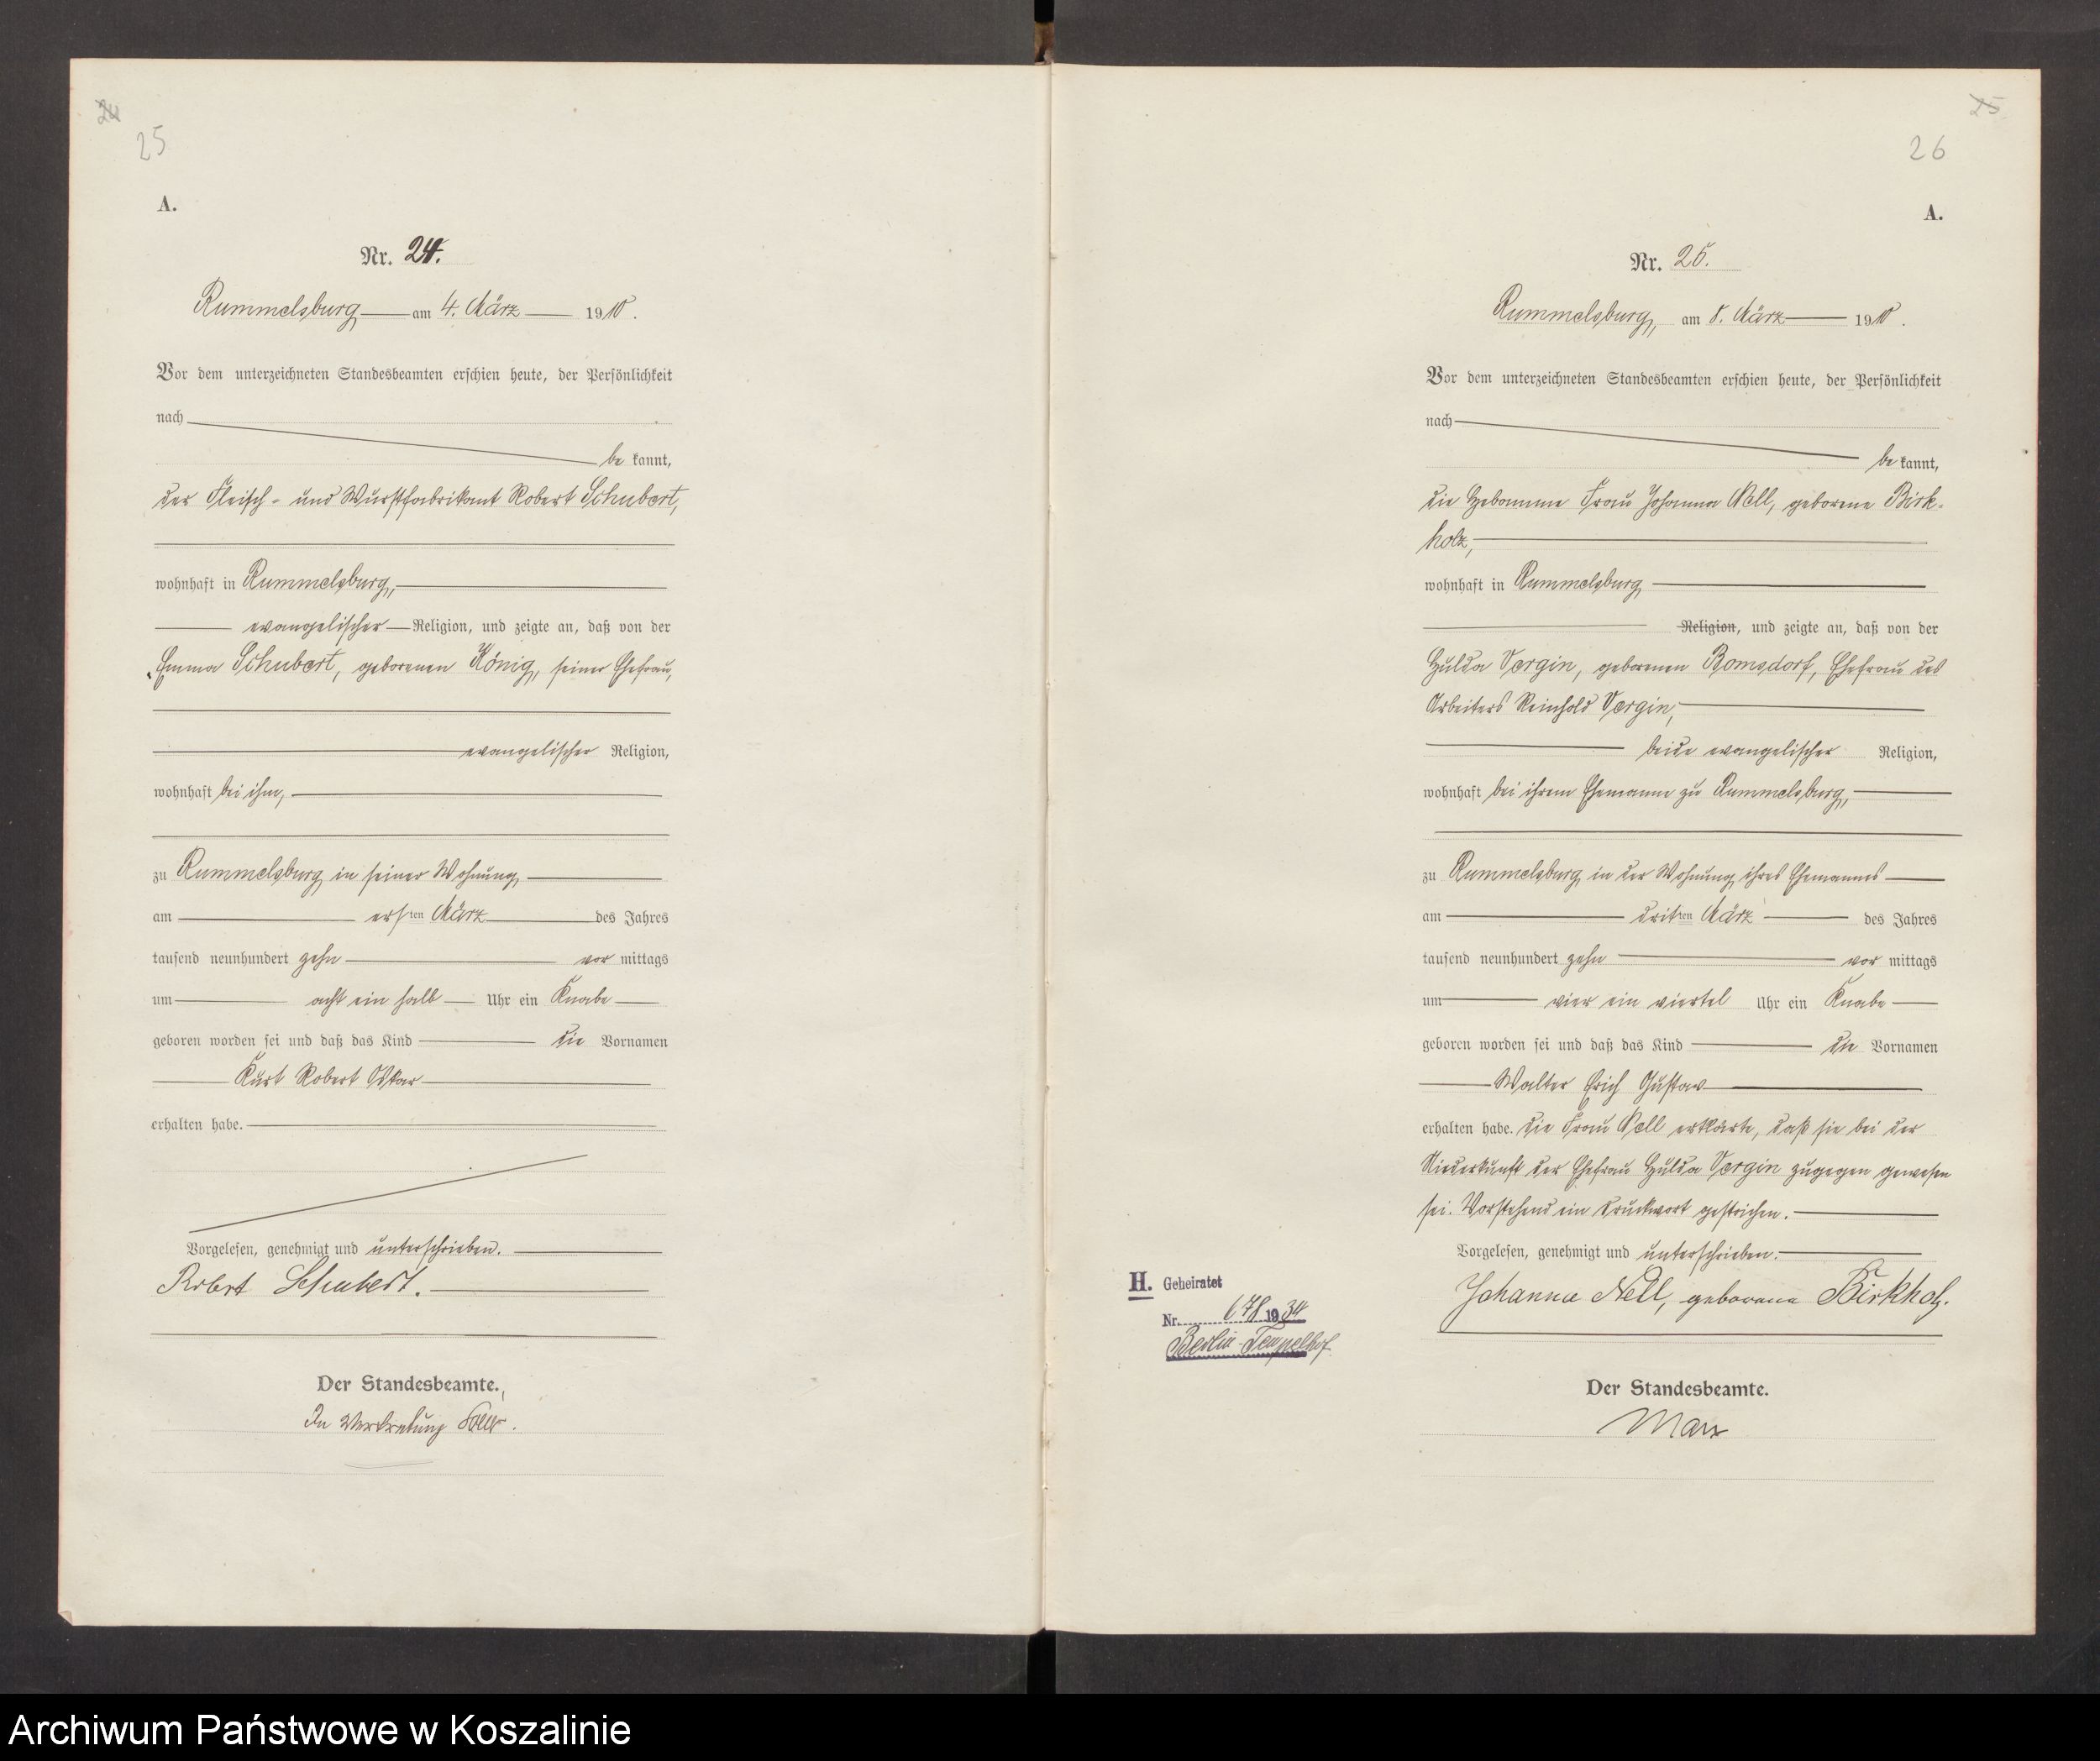 24
25
A.
Nr. 24.
Rummelsburg am 4. März 1910.
Vor dem unterzeichneten Standesbeamten erschien heute, der Persönlichkeit
nach
be kannt,
der Fleisch- und Wurstfabrikant Robert Schubert,
wohnhaft in Rummelsburg,
evangelischer Religion, und zeigte an, daß von der
Emma Schubert, geborenen König, seiner Ehefrau,
evangelischer Religion,
wohnhaft bei ihm,
zu Rummelsburg in seiner Wohnung
am ersten März des Jahres
tausend neunhundert zehn vor mittags
um acht ein halb Uhr ein Knabe
geboren worden sei und daß das Kind die Vornamen
Kurt Robert Oskar
erhalten habe.
Vorgelesen, genehmigt und unterschrieben.
Robert Schubert.
Der Standesbeamte.
In Vertretung
25
26
A.
Nr. 25.
Rummelsburg, am 8. März 1910.
Vor dem unterzeichneten Standesbeamten erschien heute, der Persönlichkeit
nach
be kannt,
die Hebamme Frau Johanna Nell, geborene Birk-
holz,
wohnhaft in Rummelsburg
Religion, und zeigte an, daß von der
Hulda Vergin, geborenen Bomsdorf, Ehefrau des
Arbeiters Reinhold Vergin,
beide evangelischer Religion,
wohnhaft bei ihrem Ehemanne zu Rummelsburg,
zu Rummelsburg in der Wohnung ihres Ehemannes
am dritten März des Jahres
tausend neunhundert zehn vor mittags
um vier ein viertel Uhr ein Knabe
geboren worden sei und daß das Kind die Vornamen
Walter Erich Gustav
erhalten habe. Die Frau Nell erklärte, daß sie bei der
Niederkunft der Ehefrau Hulda Vergin zugegen gewesen
sei. Vorstehend ein Druckwort gestrichen.
Vorgelesen, genehmigt und unterschrieben.
Johanna Nell, geborene Birkholz.
H. Geheiratet
Nr. 678 1934
Berlin-Tempelhof
Der Standesbeamte.
Marx
Archiwum Państwowe w Koszalinie